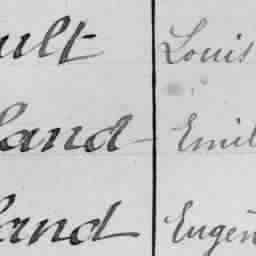 ult Louis
land Emil
land Eugén